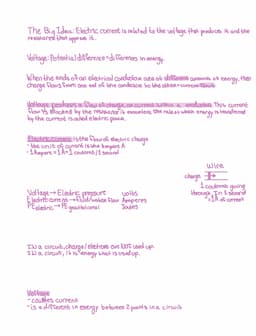 The Big Idea: Electric current is related to the voltage that produces it and the
resistance that opposes it.
Voltage: Potential difference = differences in energy.
When the ends of an electrical conductor are at different amounts of energy, then
charge flows from one end of the conductor to the other -
Voltage produces a flow of charge, or current within a conductor. This current
flow is blocked by the resistor is resisted, the rate at which energy is transferred
by the current is called electric power.
Electric current is the flow of electric charge
- the unit of current is the Ampere A
- 1 Ampere = 1 A = 1 coulomb / 1 second
Wire
charge
1 coulomb going
through in 1 second
= 1 A of current
Voltage → Electric pressure Volts
Electric current → flow Amperes
PE electric → PE gravitational Joules
IN a circuit, charge / electrons are NOT used up.
IN a circuit, it is energy that is used up.
Voltage
- causes current
- is a different in energy between 2 points in a circuit